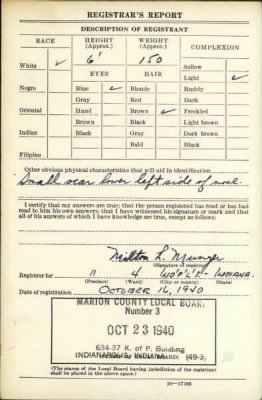 REGISTRAR'S REPORT
DESCRIPTION OF REGISTRANT
RACE HEIGHT (Approx.) WEIGHT (Approx.) COMPLEXION
White ✓ 6' 150 Sallow
EYES HAIR Light ✓
Negro Blue ✓ Blonde Ruddy
Gray Red Dark
Oriental Hazel Brown ✓ Freckled
Brown Black Light brown
Indian Black Gray Dark brown
Bald Black
Filipino
Other obvious physical characteristics that will aid in identification
Small scar lower left side of
I certify that my answers are true; that the person registered has read or has had read to him his own answers; that I have witnessed his signature or mark and that all of his answers of which I have knowledge are true, except as follows:
Milton L. Munger
(Signature of registrar)
Registrar for 11 4 IND'P'L'S - INDIANA
(Precinct) (Ward) (City or county) (State)
Date of registration OCTOBER 16, 1940
MARION COUNTY LOCAL BOARD
Number 3
OCT 23 1940
634-37 K. of P. Building
INDIANAPOLIS, INDIANA (49-3)
(The stamp of the Local Board having jurisdiction of the registrant shall be placed in the above space.)